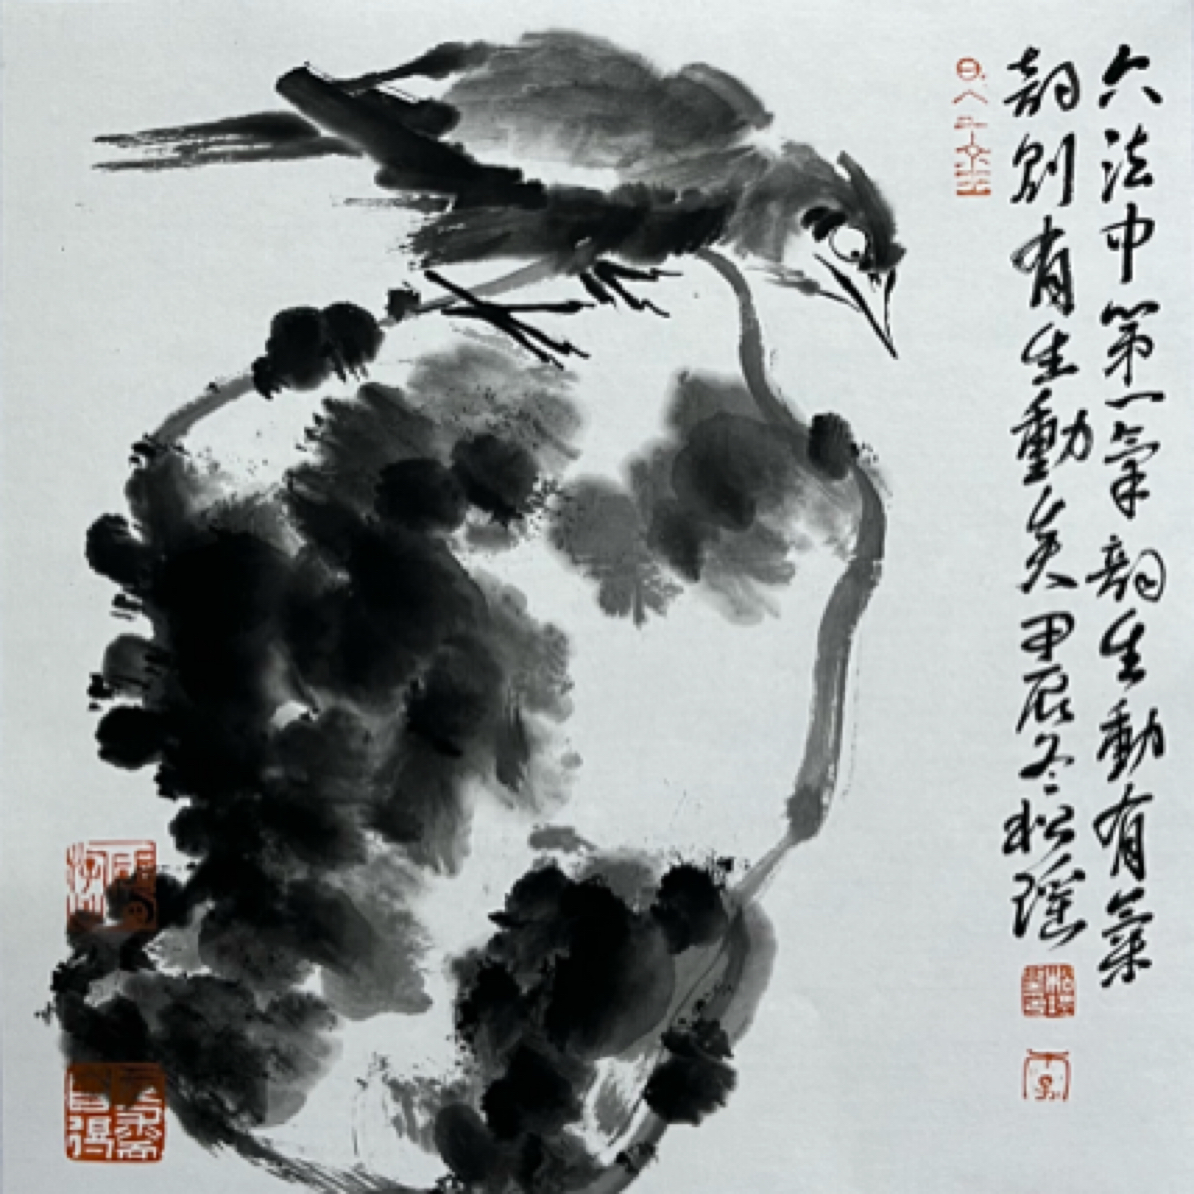 六法中第一氣韵生動有氣
韵則有生動矣甲辰冬松瑶